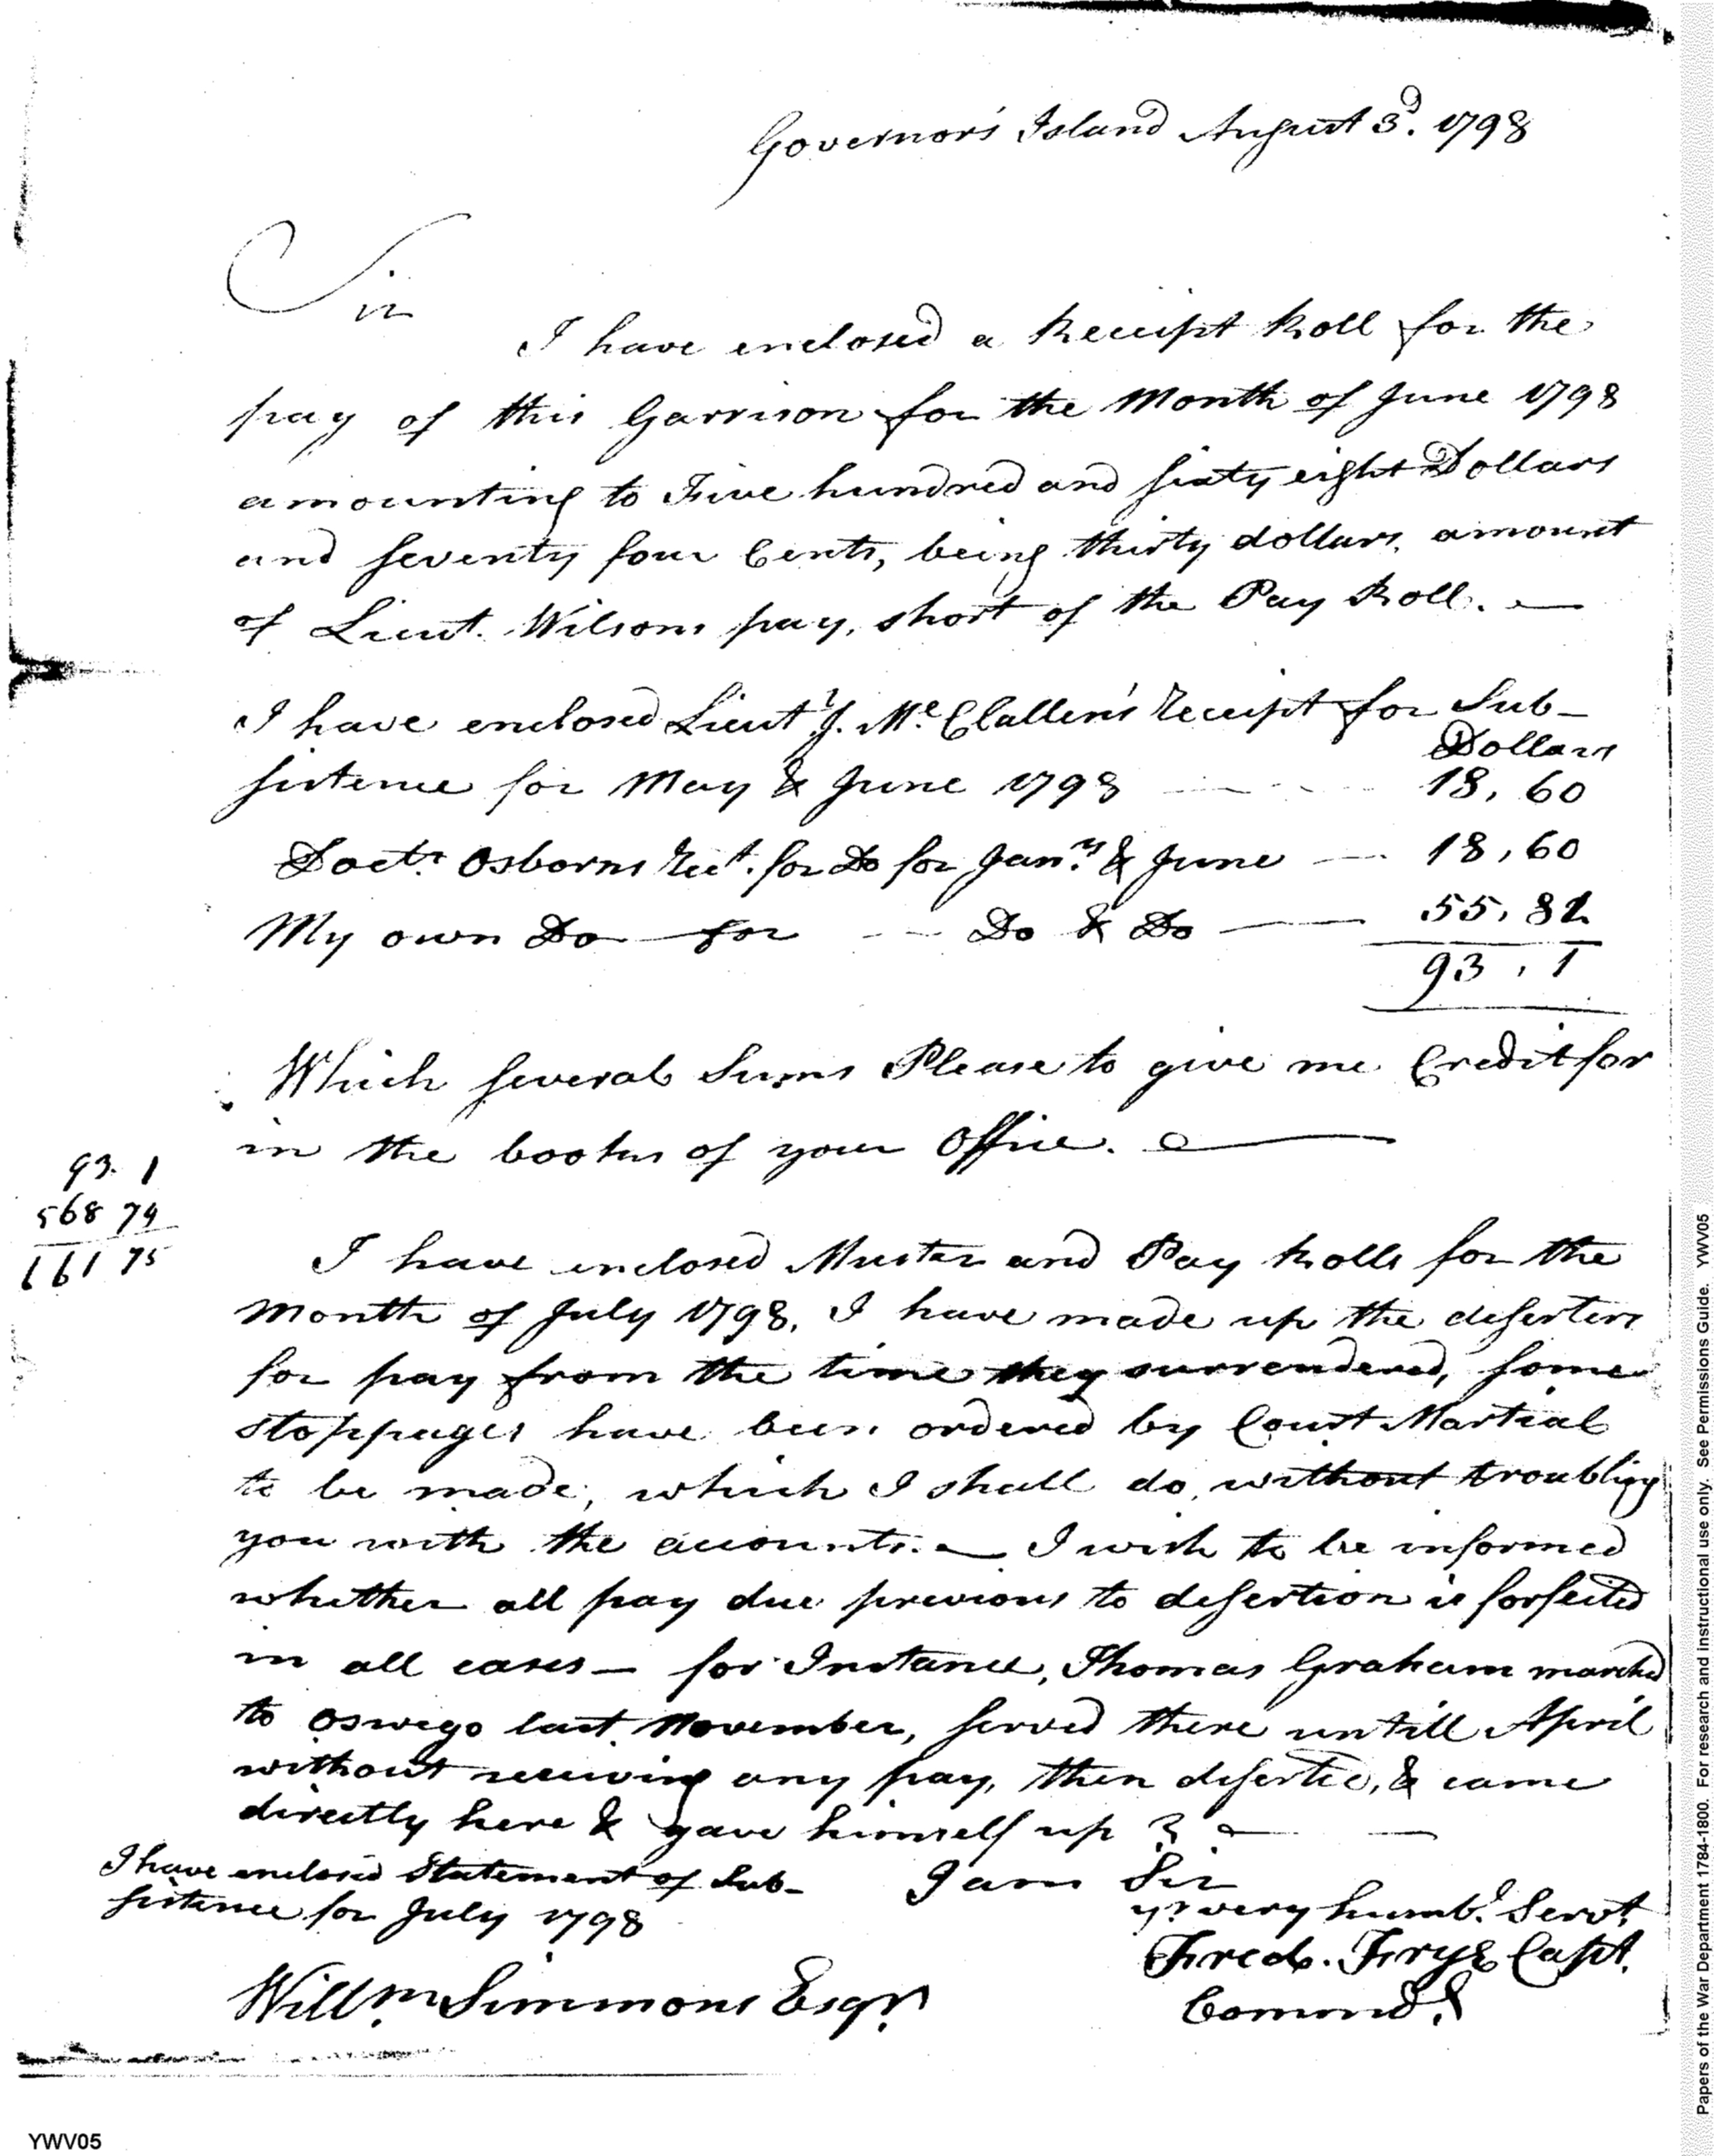 Governor's Island August 3d. 1798
Sir
I have enclosed a Receipt Roll for the
pay of this Garrison for the Month of June 1798
amounting to Five hundred and sixty eight Dollars
and seventy four Cents, being thirty dollars, amount
of Lieut. Wilsons pay, short of the Pay Roll. —
I have enclosed Lieut. J. Mc. Clallen's receipt for Sub-
Dollars
sistence for May & June 1798 — — 18, 60
Doctr. Osborns rect. for Do for Jany. & June — 18, 60
My own Do — for — Do & Do — 55, 81
93, 1
Which several Sums Please to give me Credit for
in the books of your Office. —
93. 1
568 74
661 75
I have enclosed Muster and Pay Rolls for the
Month of July 1798, I have made up the deserters
for pay from the time they surrendered, some
stoppages have been ordered by Court Martial
to be made, which I shall do, without troubling
you with the accounts. — I wish to be informed
whether all pay due previous to desertion is forfeited
in all cases — for Instance, Thomas Graham marched
to Oswego last November, served there untill April
without receiving any pay, then deserted, & came
directly here & gave himself up ? —
I have enclosed Statement of Sub-
sistence for July 1798
I am Sir
yr. very humbl. Servt.
Fredk. Frye Capt.
Command.
Willm. Simmons Esqr.
YWV05
Papers of the War Department 1784-1800. For research and instructional use only. See Permissions Guide. YWV05